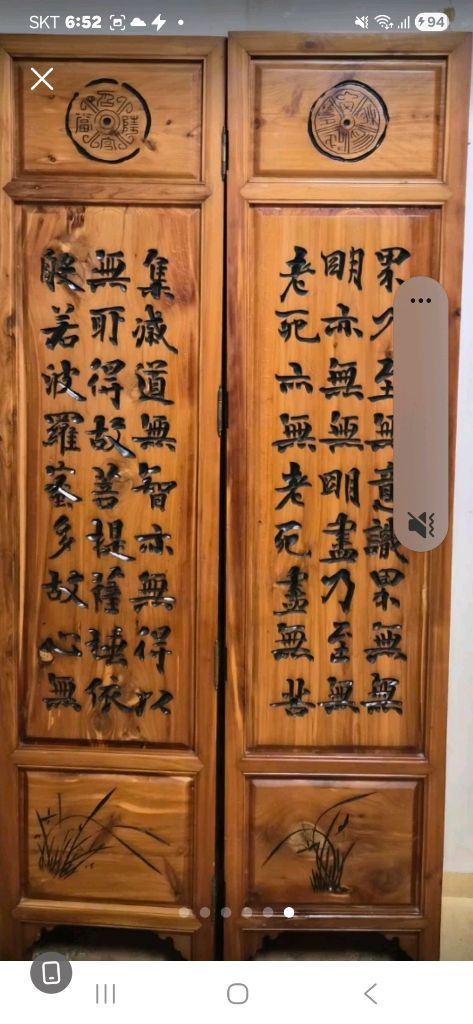 SKT 6:52
94
界乃至無意識界無無
明亦無無明盡乃至無
老死亦無老死盡無苦
集滅道無智亦無得以
無所得故菩提薩埵依
般若波羅蜜多故心無